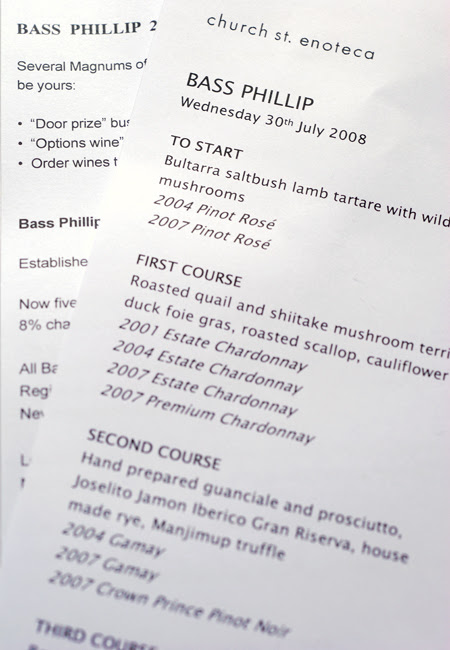 BASS PHILLIP 2
Several Magnums of
be yours:
• "Door prize" bus
• "Options wine"
• Order wines t
Bass Phillip
Establishe
Now five
8% cha
All Ba
Regi
New
church st. enoteca
BASS PHILLIP
Wednesday 30th July 2008
TO START
Bultarra saltbush lamb tartare with wild
mushrooms
2004 Pinot Rosé
2007 Pinot Rosé
FIRST COURSE
Roasted quail and shiitake mushroom terri
duck foie gras, roasted scallop, cauliflower
2001 Estate Chardonnay
2004 Estate Chardonnay
2007 Estate Chardonnay
2007 Premium Chardonnay
SECOND COURSE
Hand prepared guanciale and prosciutto,
Joselito Jamon Iberico Gran Riserva, house
made rye, Manjimup truffle
2004 Gamay
2007 Gamay
2007 Crown Prince Pinot Noir
THIRD COURSE